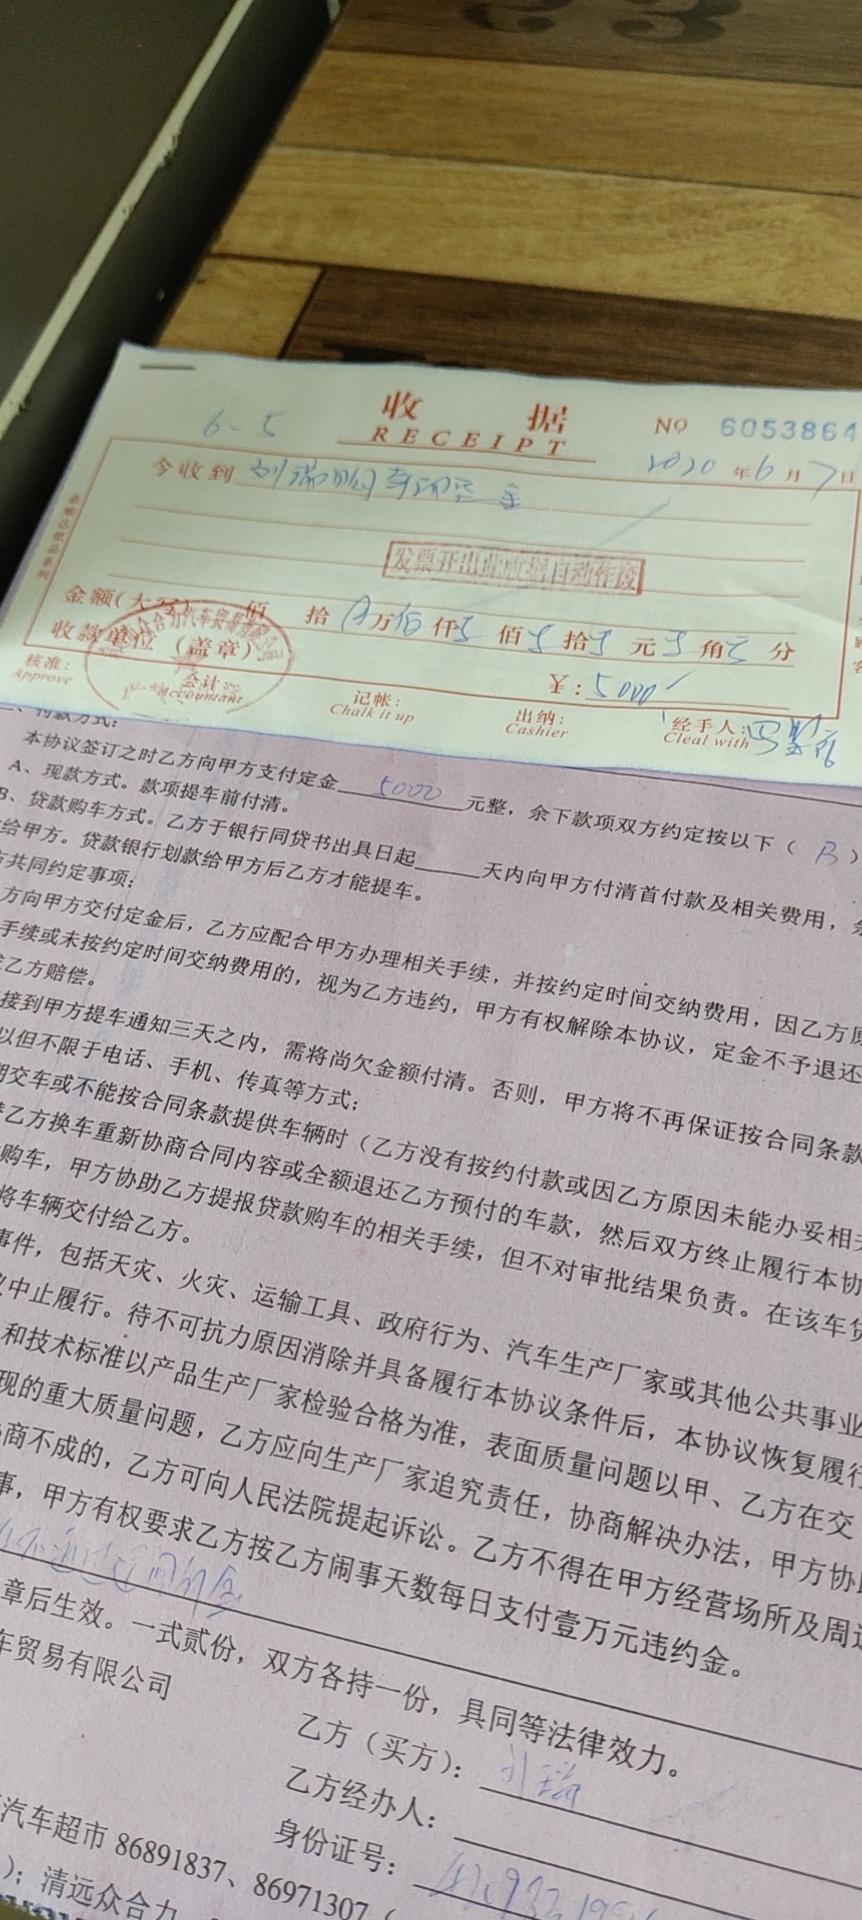 收 据
RECEIPT
NO 6053864
6-5
2020 年 6 月 7 日
今收到
发票开出此收据自动作废
金额(大写) 佰 拾 万 仟 佰 拾 元 角 分
收款单位（盖章）
¥：5000
核准： 会计 记帐： 出纳： 经手人：
Approve Accountant Chalk it up Cashier Cleal with
、付款方式：
本协议签订之时乙方向甲方支付定金 5000 元整，余下款项双方约定按以下（ B ）
A、现款方式。款项提车前付清。
B、贷款购车方式。乙方于银行同贷书出具日起 天内向甲方付清首付款及相关费用，
给甲方。贷款银行划款给甲方后乙方才能提车。
方共同约定事项：
方向甲方交付定金后，乙方应配合甲方办理相关手续，并按约定时间交纳费用，因乙方原
手续或未按约定时间交纳费用的，视为乙方违约，甲方有权解除本协议，定金不予退还
乙方赔偿。
接到甲方提车通知三天之内，需将尚欠金额付清。否则，甲方将不再保证按合同条款
以但不限于电话、手机、传真等方式；
期交车或不能按合同条款提供车辆时（乙方没有按约付款或因乙方原因未能办妥相关
乙方换车重新协商合同内容或全额退还乙方预付的车款，然后双方终止履行本协
购车，甲方协助乙方提报贷款购车的相关手续，但不对审批结果负责。在该车贷
将车辆交付给乙方。
事件，包括天灾、火灾、运输工具、政府行为、汽车生产厂家或其他公共事业
中止履行。待不可抗力原因消除并具备履行本协议条件后，本协议恢复履行
和技术标准以产品生产厂家检验合格为准，表面质量问题以甲、乙方在交
现的重大质量问题，乙方应向生产厂家追究责任，协商解决办法，甲方协
商不成的，乙方可向人民法院提起诉讼。乙方不得在甲方经营场所及周边
事，甲方有权要求乙方按乙方闹事天数每日支付壹万元违约金。
章后生效。一式贰份，双方各持一份，具同等法律效力。
车贸易有限公司
乙方（买方）：
乙方经办人：
身份证号：
汽车超市 86891837、86971307
）；清远众合力